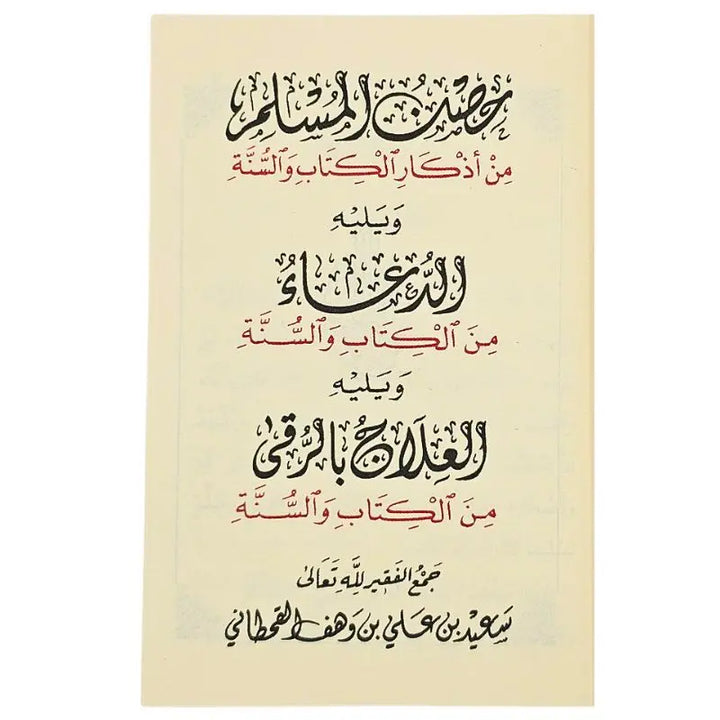 حِصْنُ الْمُسْلِمِ
مِنْ أَذْكَارِ ٱلْكِتَابِ وَٱلسُّنَّةِ
وَيَلِيْهِ
الدُّعَاءُ
مِنَ ٱلْكِتَابِ وَٱلسُّنَّةِ
وَيَلِيْهِ
العِلَاجُ بِالرُّقَىٰ
مِنَ ٱلْكِتَابِ وَٱلسُّنَّةِ
جَمْعُ الفَقِيرِ للَّهِ تَعَالَىٰ
سَعِيْد بن عَلي بن وَهف القحطاني